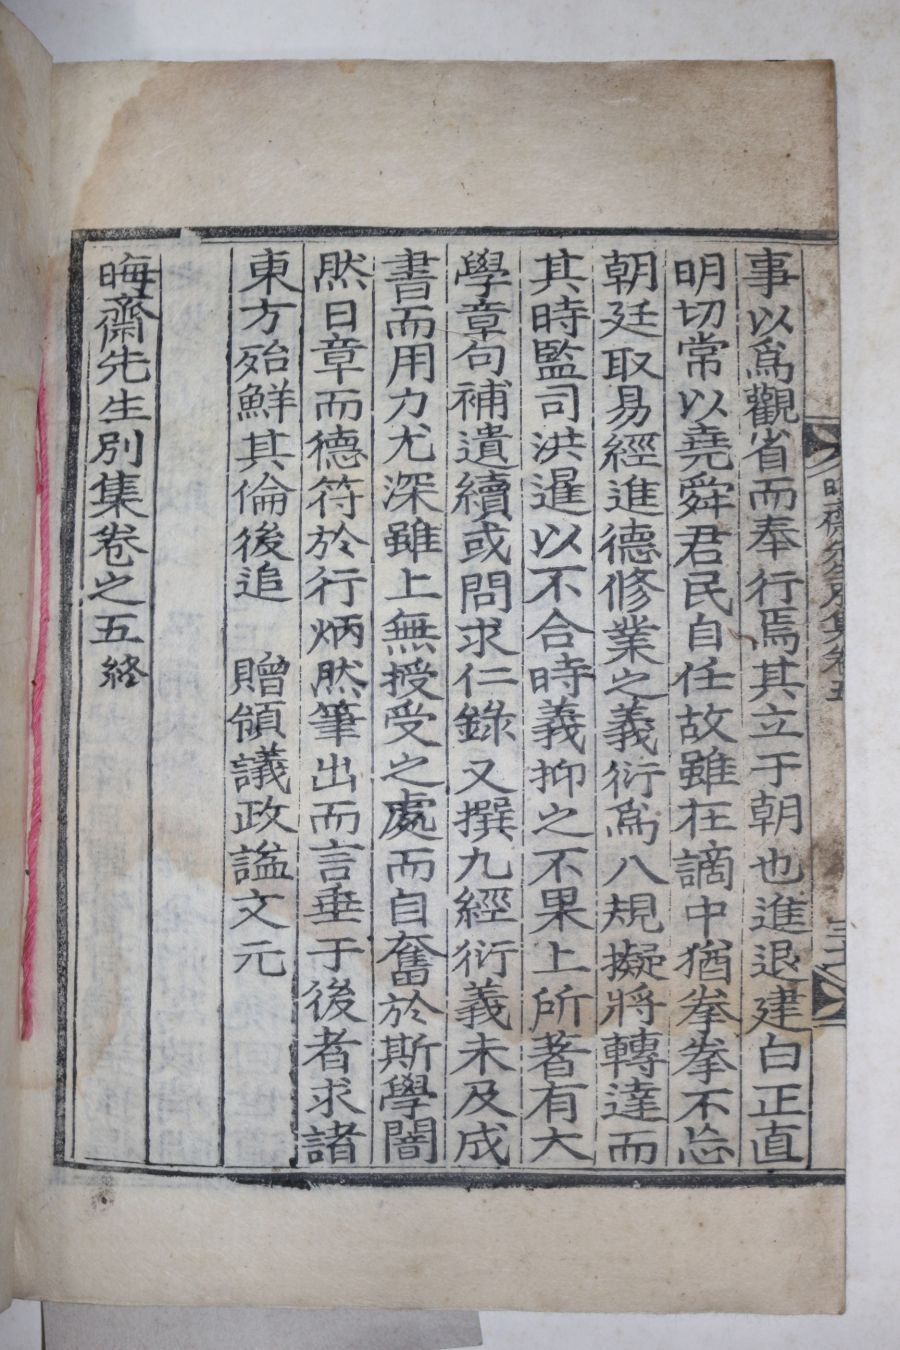 事以爲觀省而奉行焉其立于朝也進退建白正直
明切常以堯舜君民自任故雖在謫中猶拳拳不忘
朝廷取易經進德修業之義衍爲八規擬將轉達而
其時監司洪暹以不合時義抑之不果上所著有大
學章句補遺續或問求仁錄又撰九經衍義未及成
書而用力尤深雖上無授受之處而自奮於斯學闇
然日章而德符於行炳然筆出而言垂于後者求諸
東方殆鮮其倫後追 贈領議政諡文元
晦齋先生別集卷之五終
晦齋先生別集卷五